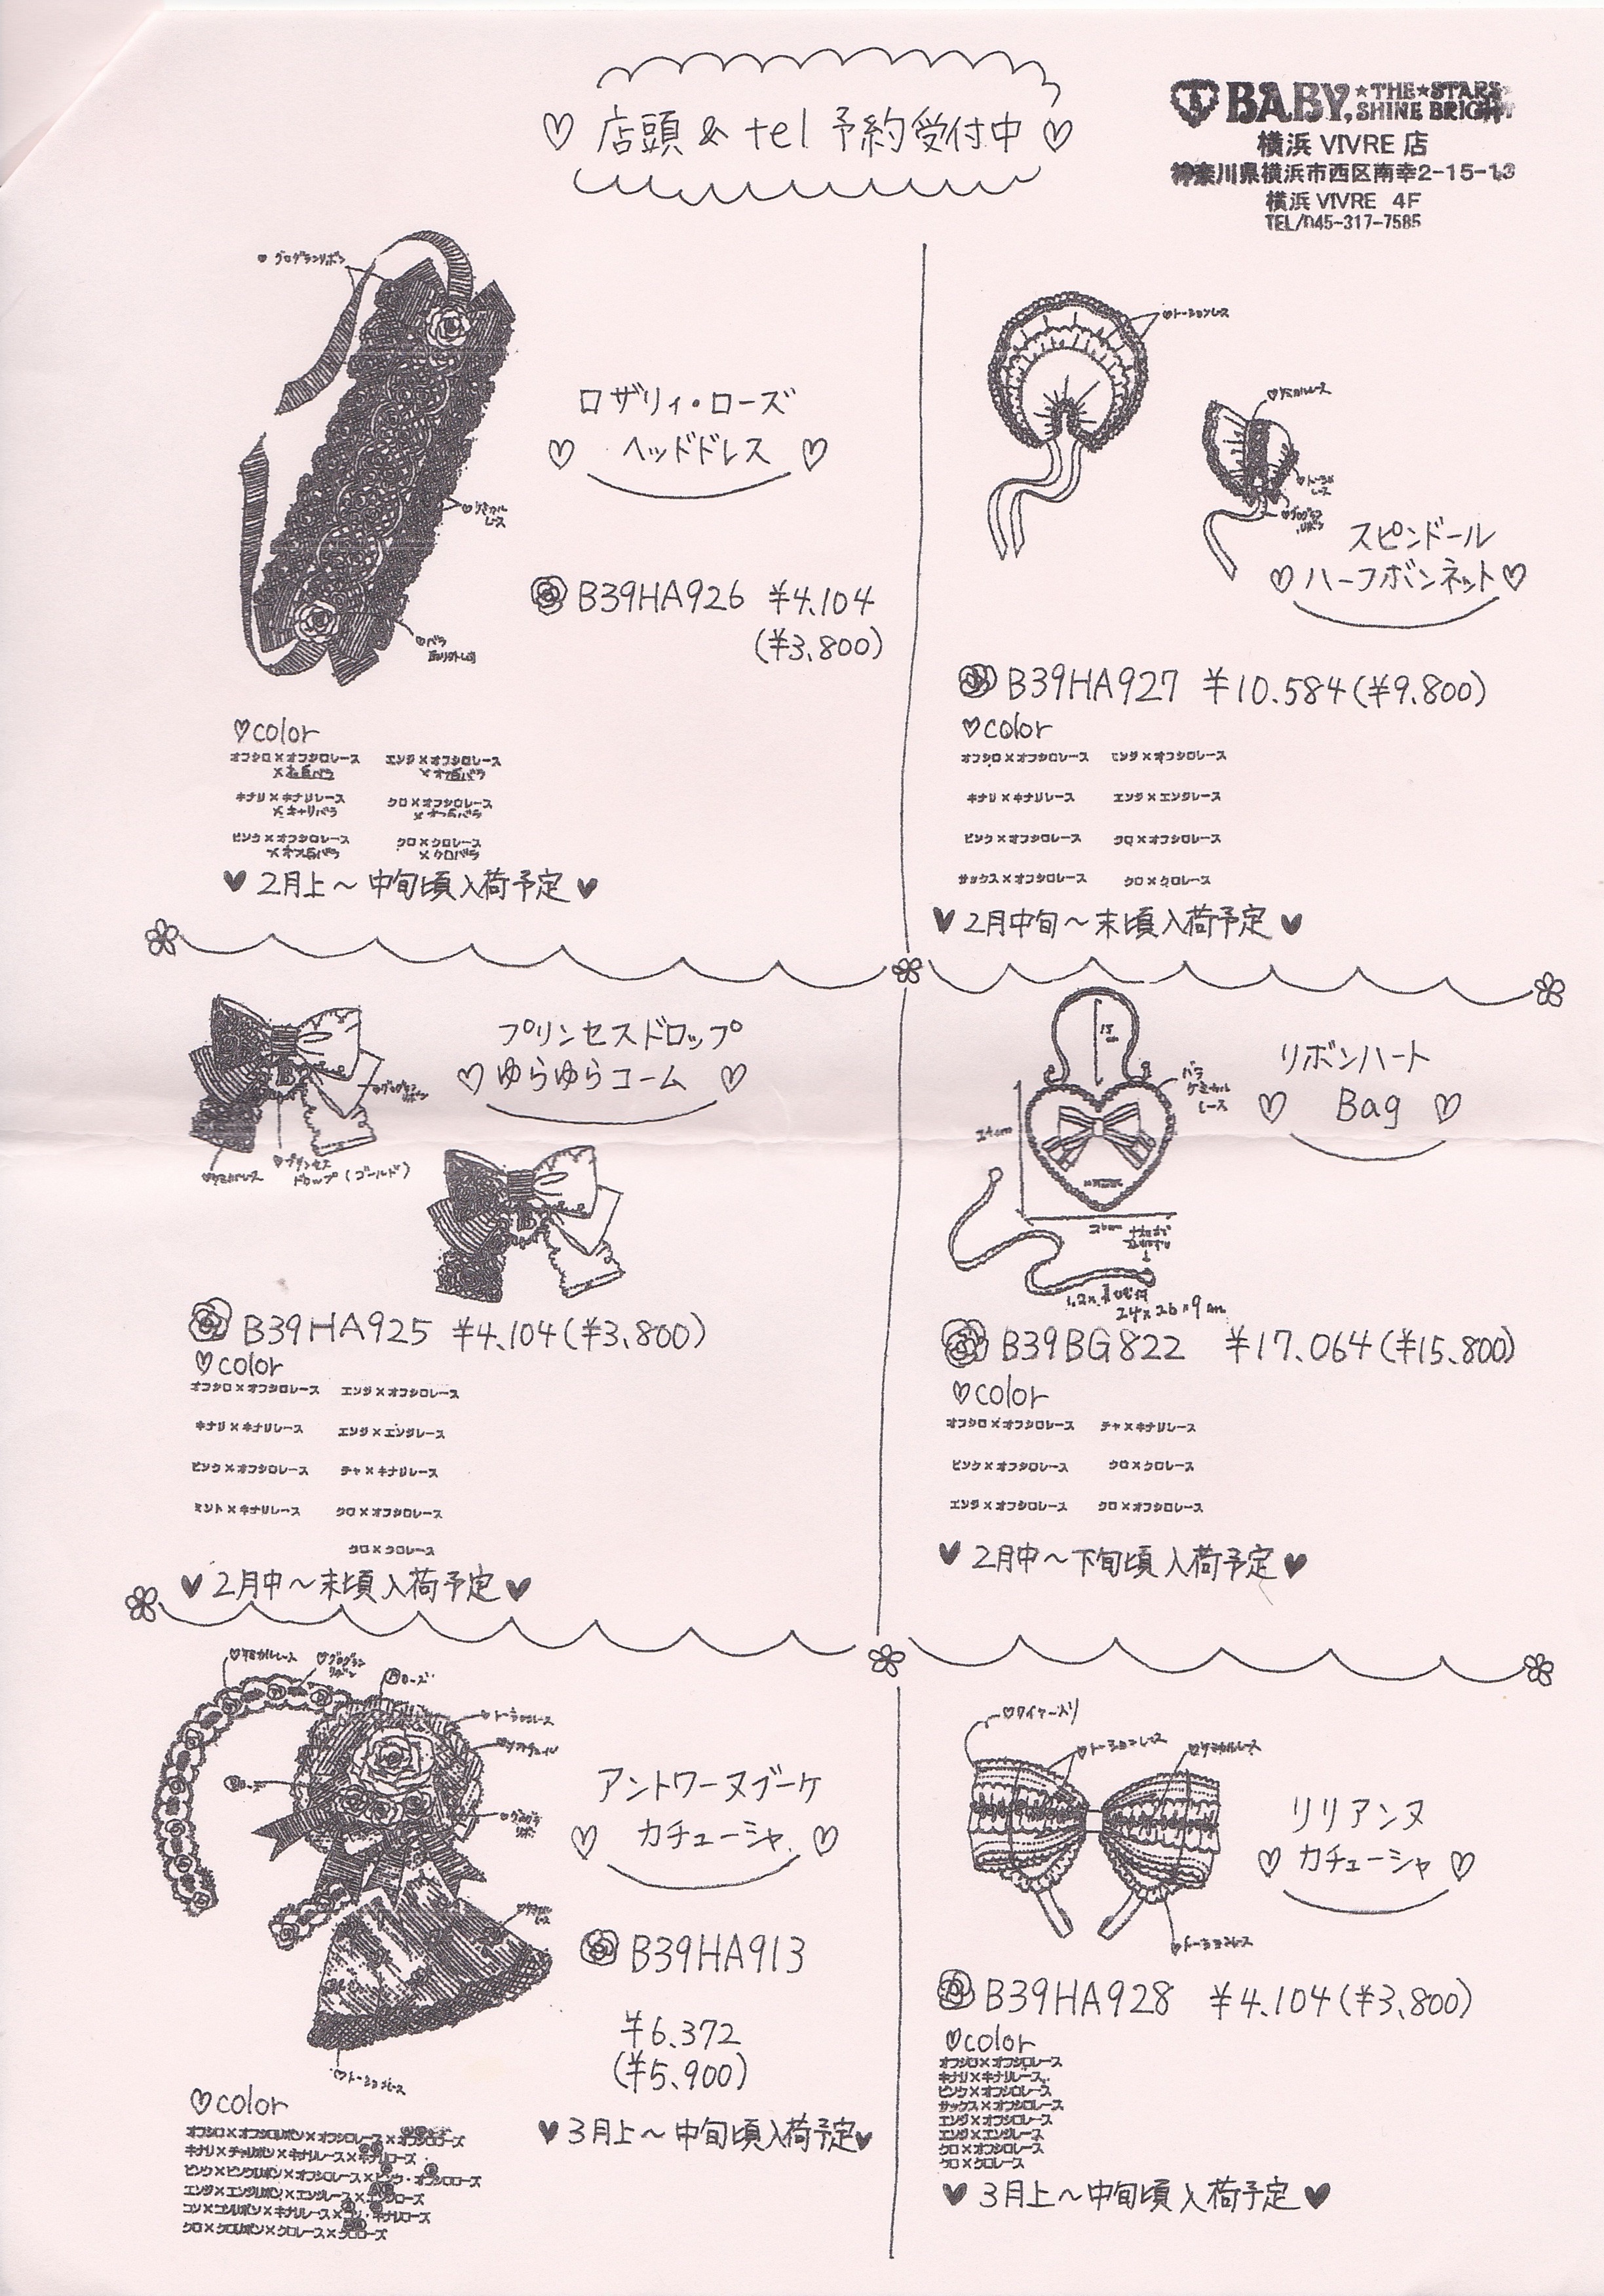 店頭 & tel 予約受付中
BABY, THE STARS SHINE BRIGHT
横浜 VIVRE 店
神奈川県横浜市西区南幸2-15-13
横浜 VIVRE 4F
TEL/045-317-7585
グログランリボン
ロザリィ・ローズ
ヘッドドレス
ケミカル
レース
バラ
B39HA926 ¥4.104
(¥3.800)
color
オフシロ×オフシロレース
エンジ×オフシロレース
キナリ×キナリレース
×キナリバラ
クロ×オフシロレース
ピンク×オフシロレース
クロ×クロレース
×クロバラ
2月上～中旬頃入荷予定
トーションレース
ケミカルレース
トーション
レース
グログラン
リボン
スピンドール
ハーフボンネット
B39HA927 ¥10.584(¥9.800)
color
オフシロ×オフシロレース
エンジ×オフシロレース
キナリ×キナリレース
エンジ×エンジレース
ピンク×オフシロレース
クロ×オフシロレース
サックス×オフシロレース
クロ×クロレース
2月中旬～末頃入荷予定
プリンセスドロップ
ゆらゆらコーム
グログラン
リボン
ケミカルレース
プリンセス
ドロップ(ゴールド)
B39HA925 ¥4.104(¥3.800)
color
オフシロ×オフシロレース
エンジ×オフシロレース
キナリ×キナリレース
エンジ×エンジレース
ピンク×オフシロレース
チャ×キナリレース
ミント×キナリレース
クロ×オフシロレース
クロ×クロレース
2月中～末頃入荷予定
リボンハート
Bag
バラ
ケミカル
レース
24cm
24×26×9cm
B39BG822 ¥17.064(¥15.800)
color
オフシロ×オフシロレース
チャ×キナリレース
ピンク×オフシロレース
クロ×クロレース
エンジ×オフシロレース
クロ×オフシロレース
2月中～下旬頃入荷予定
ケミカルレース
グログラン
リボン
Aローズ
トーションレース
ソフトチュール
Bローズ
グログラン
リボン
ケミカル
レース
トーションレース
アントワーヌブーケ
カチューシャ
B39HA913
¥6.372
(¥5.900)
color
オフシロ×オフシロリボン×オフシロレース×オフシロローズ
キナリ×チャリボン×キナリレース×キナリローズ
ピンク×ピンクリボン×オフシロレース×ピンク・オフシロローズ
エンジ×エンジリボン×エンジレース×エンジローズ
コン×コンリボン×キナリレース×コン・キナリローズ
クロ×クロリボン×クロレース×クロローズ
3月上～中旬頃入荷予定
ワイヤー入り
トーションレース
ケミカルレース
トーションレース
リリアンヌ
カチューシャ
B39HA928 ¥4.104(¥3.800)
color
オフシロ×オフシロレース
キナリ×キナリレース
ピンク×オフシロレース
サックス×オフシロレース
エンジ×オフシロレース
エンジ×エンジレース
クロ×オフシロレース
クロ×クロレース
3月上～中旬頃入荷予定